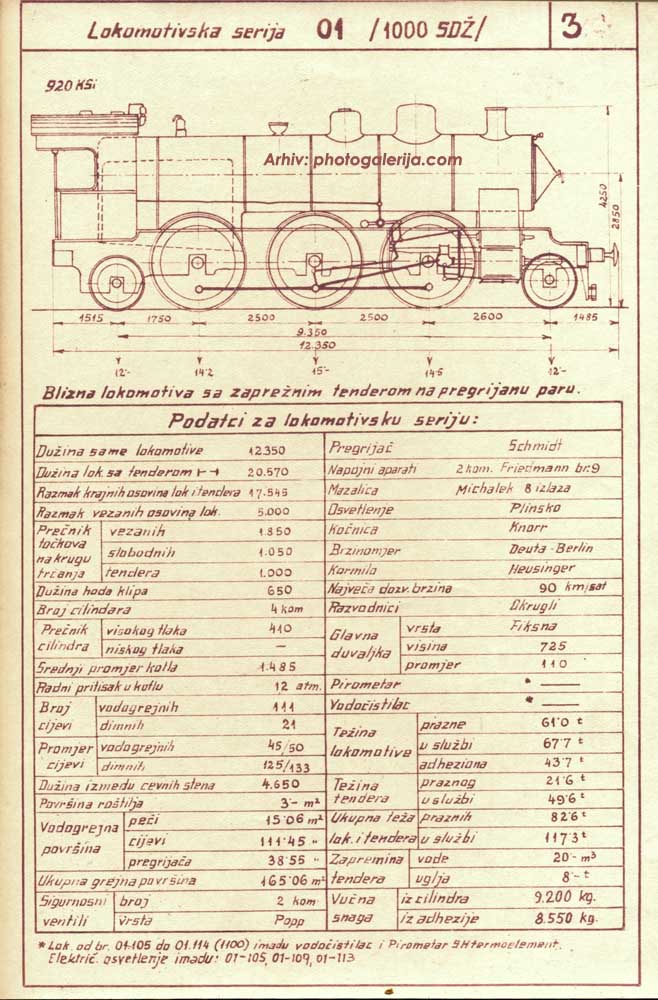 Lokomotivska serija 01 /1000 SDŽ/ 3
920 KSi
Arhiv: photogalerija.com
4250
2850
1515 1750 2500 2500 2600 1485
9.350
12.350
12·- 14·2 15·- 14·5 12·-
Blizna lokomotiva sa zaprežnim tenderom na pregrijanu paru.
Podatci za lokomotivsku seriju:
Dužina same lokomotive 12.350
Dužina lok. sa tenderom 20.570
Razmak krajnih osovina lok i tendera 17.545
Razmak vezanih osovina lok. 5.000
Prečnik točkova na krugu trčanja
vezanih 1.850
slobodnih 1.050
tendera 1.000
Dužina hoda klipa 650
Broj cilindara 4 kom
Prečnik cilindra
visokog tlaka 410
niskog tlaka —
Srednji promjer kotla 1.485
Radni pritisak u kotlu 12 atm.
Broj cijevi
vodogrejnih 111
dimnih 21
Promjer cijevi
vodogrejnih 45/50
dimnih 125/133
Dužina između cevnih stena 4.650
Površina roštilja 3·- m²
Vodogrejna površina
peći 15·06 m²
cijevi 111·45 "
pregrijača 38·55 "
Ukupna grejna površina 165·06 m²
Sigurnosni ventili
broj 2 kom
vrsta Popp
Pregrijač Schmidt
Napojni aparati 2 kom. Friedmann br. 9
Mazalica Michalek 8 izlaza
Osvetlenje Plinsko
Kočnica Knorr
Brzinomjer Deuta-Berlin
Kormilo Heusinger
Najveća dozv. brzina 90 km/sat
Razvodnici Okrugli
Glavna duvaljka
vrsta Fiksna
visina 725
promjer 110
Pirometar * —
Vodočistilac * —
Težina lokomotive
prazne 61·0 t
u službi 67·7 t
adheziona 43·7 t
Težina tendera
praznog 21·6 t
u službi 49·6 t
Ukupna teža lok. i tendera
praznih 82·6 t
u službi 117·3 t
Zapremina tendera
vode 20·- m³
uglja 8·- t
Vučna snaga
iz cilindra 9.200 kg.
iz adhezije 8.550 kg.
* Lok. od br. 01-105 do 01.114 (1100) imadu vodočistilac i Pirometar SH termoelement.
Električ. osvetlenje imadu: 01-105, 01-109, 01-113